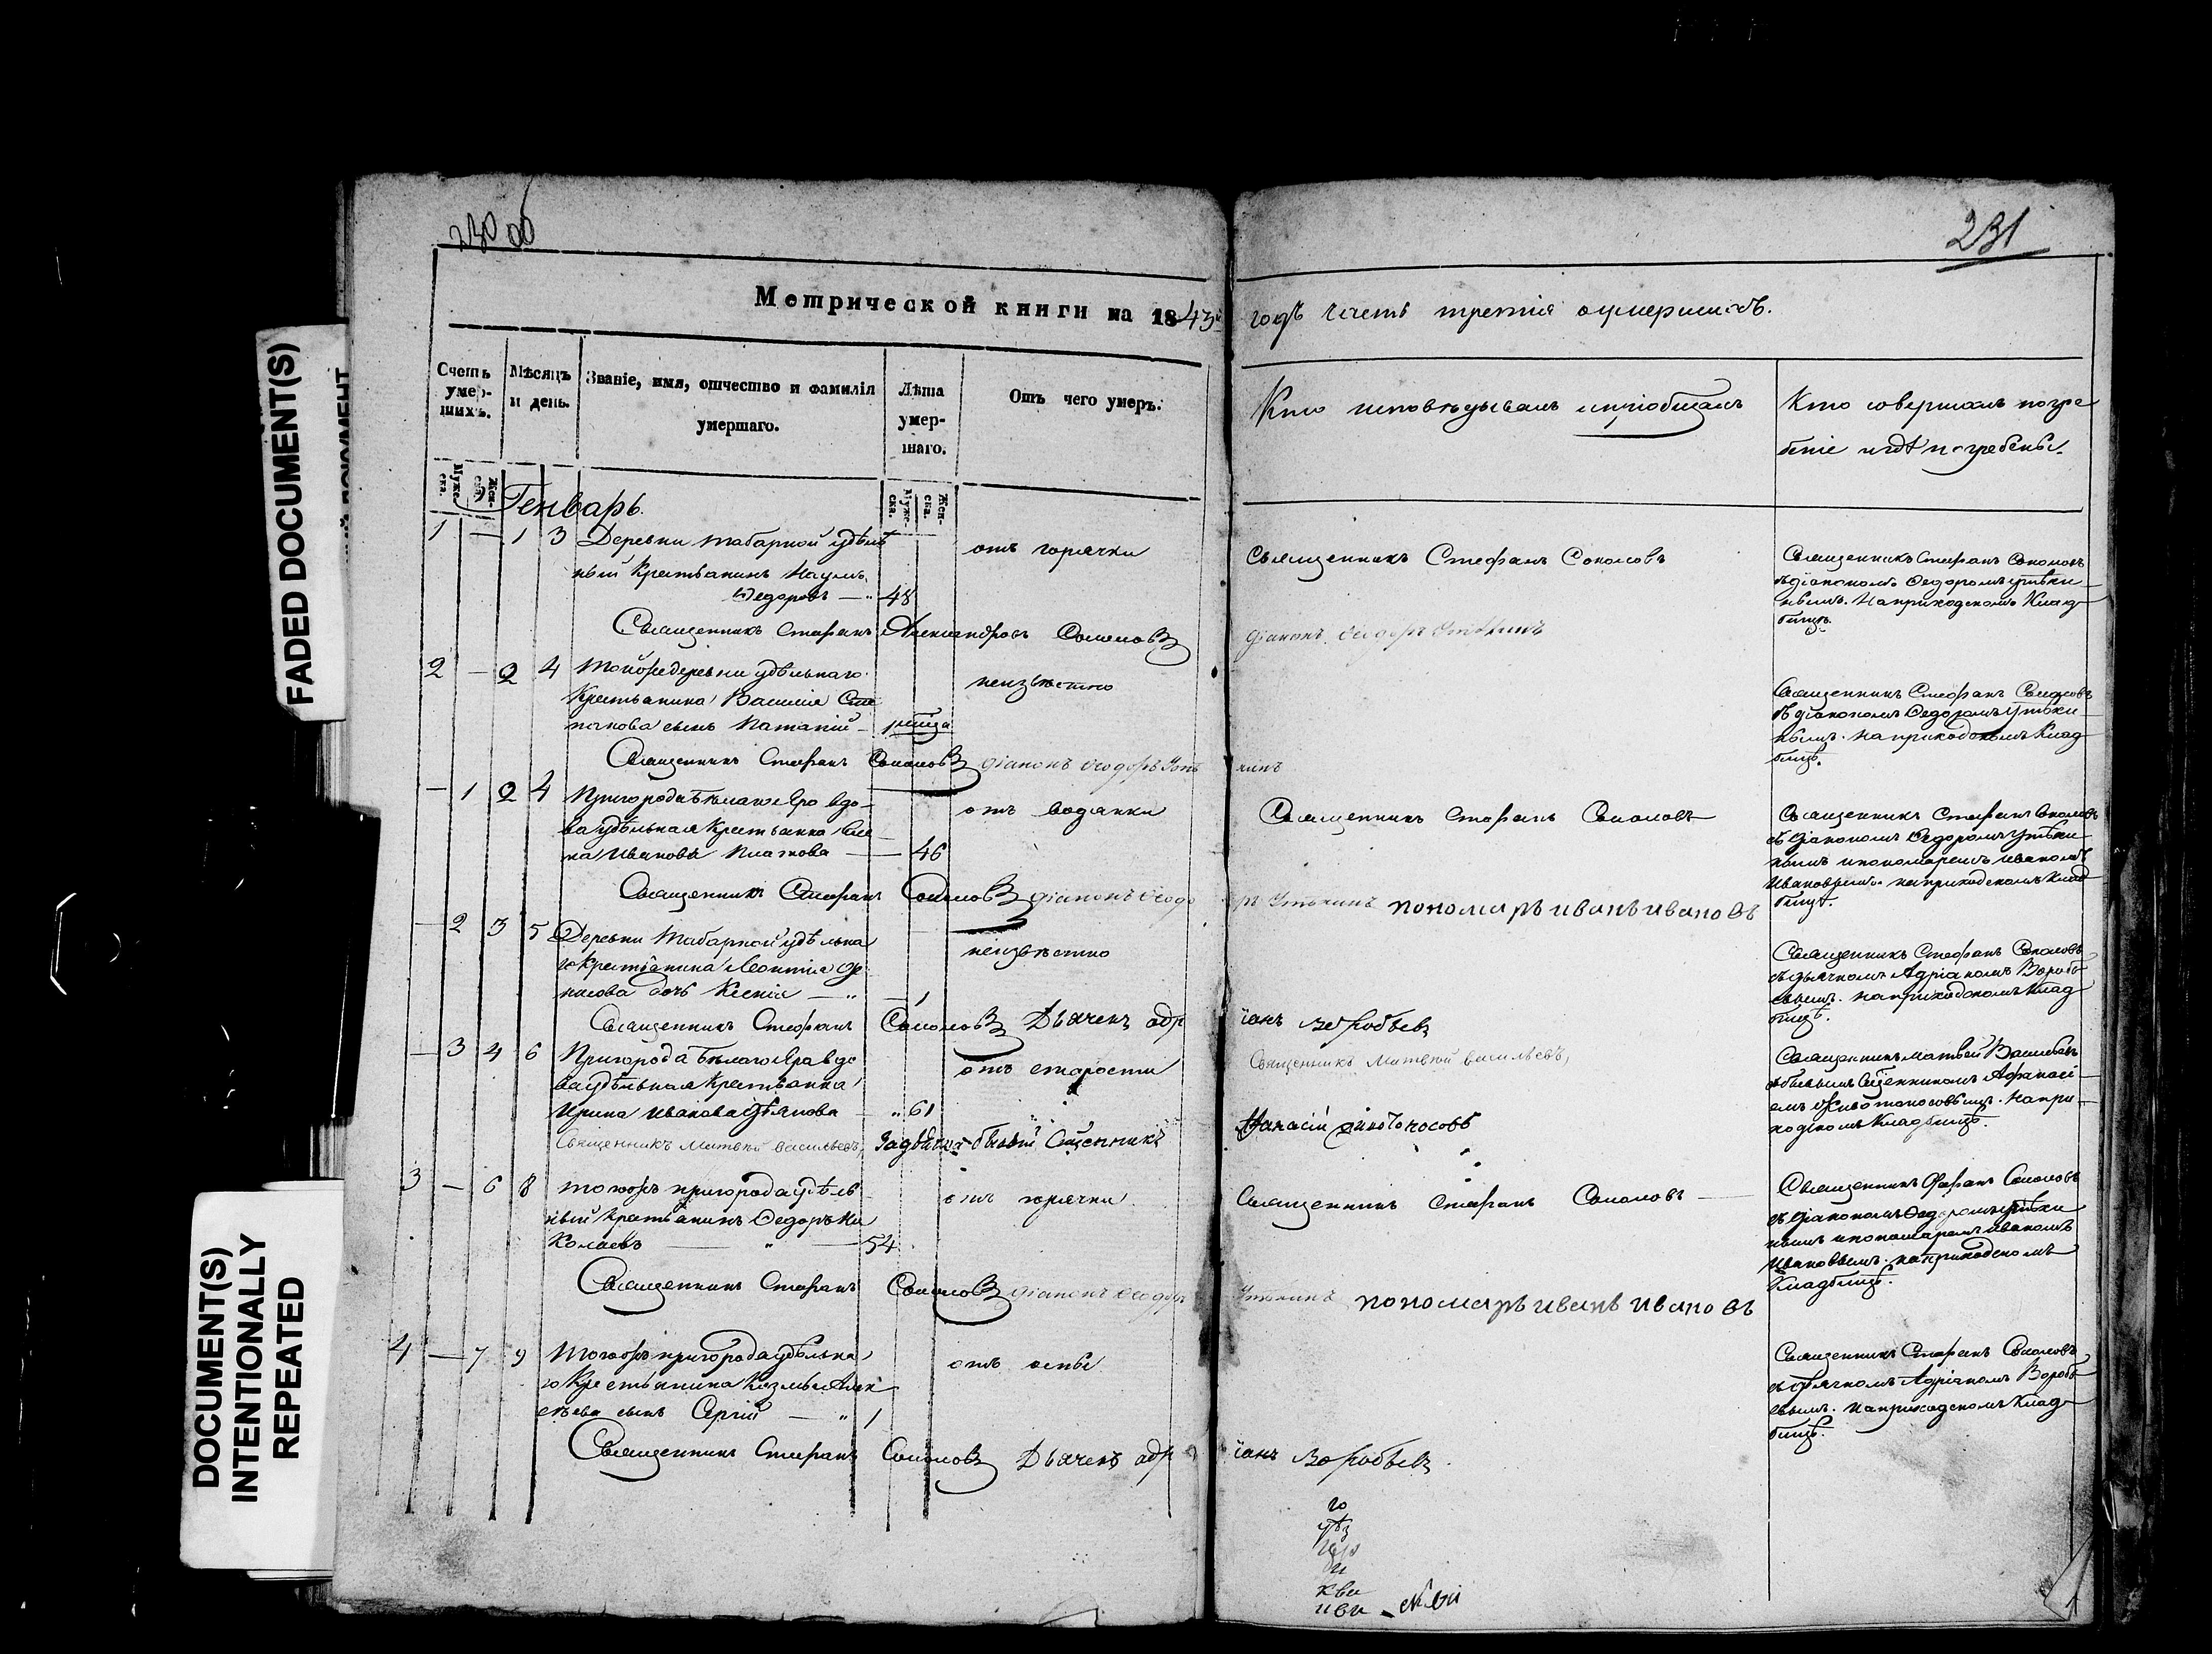 230 об
231
Метрической книги на 1843й годъ часть третiя оумершихъ.
Счетъ умер-шихъ.
Мѣсяцъ и день.
Званіе, имя, отчество и фамилія умершаго.
Лѣта умер-шаго.
Отъ чего умеръ.
Кто исповѣдывалъ и пріобщалъ
Кто совершалъ погре
беніе и гдѣ погребены.
Муже-ска.
Жен-ска.
Муже-ска.
Жен-ска.
Генварь.
1 — 1 3 Деревни табарной удѣль
ный крестьянинъ Наумъ
Ѳедоровъ — " 48
отъ горячки
Священникъ Стефанъ Соколовъ
Священникъ Стефанъ Соколовъ
съ діакономъ Ѳедоромъ Утѣки
нымъ. На приходскомъ клад
бищѣ.
Священникъ Стефанъ Александровъ Соколовъ діаконъ Ѳеодоръ Утѣкинъ
2 — 2 4 Той же деревни удѣльнаго
крестьянина Василія Сте
панова сынъ Потапій —
неизвѣстно
Священникъ Стефанъ Соколовъ
съ діакономъ Ѳедоромъ Утѣки
нымъ. на приходскомъ клад
бищѣ.
Священникъ Стефанъ Соколовъ діаконъ Ѳеодоръ Утѣкинъ
— 1 2 4 Пригорода Бѣлаго Яра вдо
ва удѣльная крестьянка Еле
на Иванова Платкова — 46
отъ водянки
Священникъ Стефанъ Соколовъ
Священникъ Стефанъ Соколовъ
съ діакономъ Ѳедоромъ Утѣки
нымъ и пономаремъ Иваномъ
Ивановымъ. на приходскомъ клад
бищѣ.
Священникъ Стефанъ Соколовъ діаконъ Ѳеодоръ Утѣкинъ пономарь иванъ ивановъ
— 2 3 5 Деревни Табарной удѣльна
го крестьянина Леонтія Де
нисова дочь Ксенія — " — 1
неизвѣстно
Священникъ Стефанъ Соколовъ
съ дьячкомъ Адріаномъ Воробь
евымъ. на приходскомъ клад
бищѣ.
Священникъ Стефанъ Соколовъ Дьячекъ адріанъ воробьевъ
— 3 4 6 Пригорода Бѣлаго Яра вдо
ва удѣльная крестьянка
Ирина Иванова — " 61
отъ старости
Священникъ Матвѣй Васильевъ
Священникъ Матвѣй Васильевъ
съ бывымъ Сщенникомъ Афанасі
емъ Животоносовымъ. На при-
ходскомъ кладбищѣ.
Священникъ Матвѣй Васильевъ, бывый Сщенникъ Афанасій Животоносовъ
3 — 6 8 Того жъ пригорода удѣль
ный крестьянинъ Ѳедоръ Ни
колаевъ — " — 54
отъ горячки
Священникъ Стефанъ Соколовъ —
Священникъ Стефанъ Соколовъ
съ діакономъ Ѳедоромъ Утѣки
нымъ и пономаремъ Иваномъ
Ивановымъ. на приходскомъ
кладбищѣ.
Священникъ Стефанъ Соколовъ діаконъ Ѳеодоръ Утѣкинъ пономарь иванъ ивановъ
4 — 7 9 Того жъ пригорода удѣльна
го крестьянина Козмы Алек
сѣева сынъ Сергій — " 1
отъ оспы
Священникъ Стефанъ Соколовъ
съ дьячкомъ Адріаномъ Воробь
евымъ. на приходскомъ клад
бищѣ.
Священникъ Стефанъ Соколовъ Дьячекъ адріанъ воробьевъ
го
FADED DOCUMENT(S)
DOCUMENT(S)
INTENTIONALLY
REPEATED